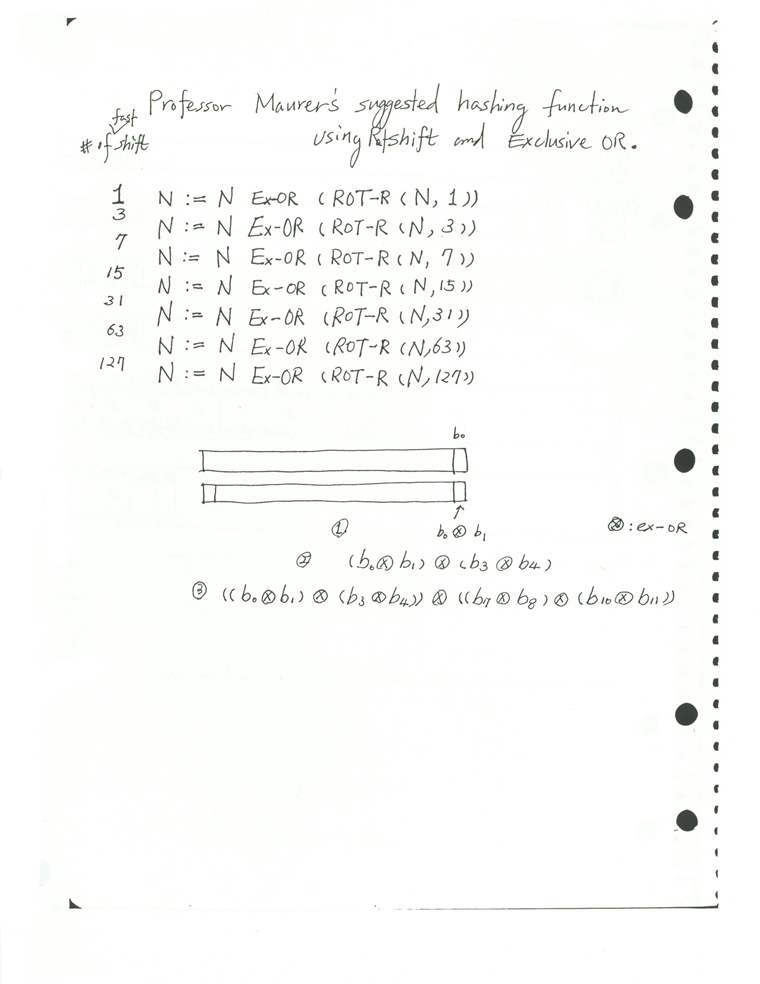 Professor Maurer's suggested hashing function
fast
# of shift using Rtshift and Exclusive OR.
1 N := N Ex-OR (ROT-R (N, 1))
3 N := N Ex-OR (ROT-R (N, 3))
7 N := N Ex-OR (ROT-R (N, 7))
15 N := N Ex-OR (ROT-R (N, 15))
31 N := N Ex-OR (ROT-R (N, 31))
63 N := N Ex-OR (ROT-R (N, 63))
127 N := N Ex-OR (ROT-R (N, 127))
b₀
① b₀ ⊗ b₁ ⊗ : ex-OR
② (b₀ ⊗ b₁) ⊗ (b₃ ⊗ b₄)
③ ((b₀ ⊗ b₁) ⊗ (b₃ ⊗ b₄)) ⊗ ((b₇ ⊗ b₈) ⊗ (b₁₀ ⊗ b₁₁))